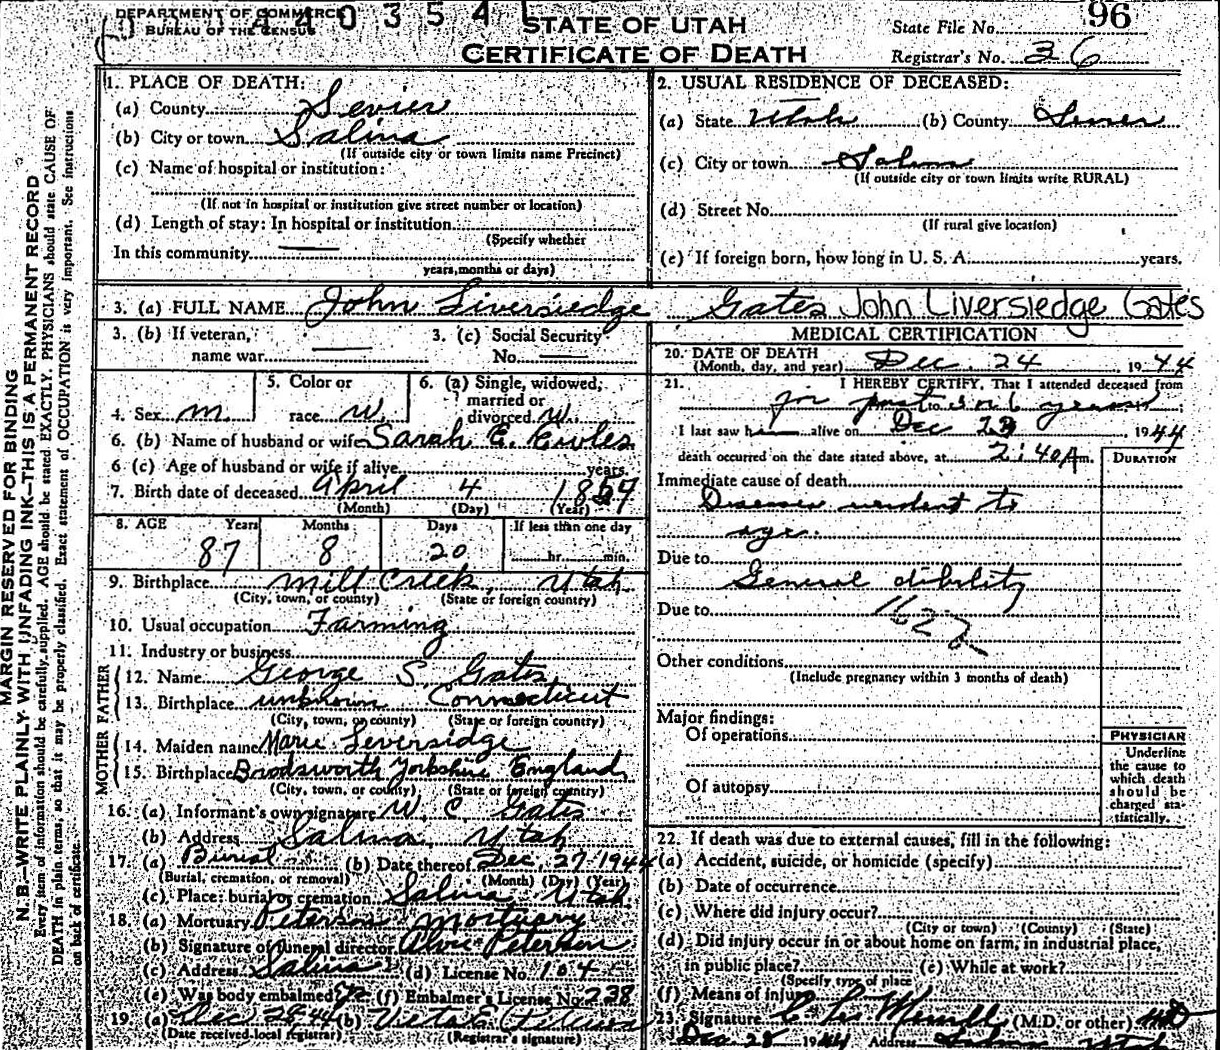 DEPARTMENT OF COMMERCE
BUREAU OF THE CENSUS
0 3 5 4
STATE OF UTAH
CERTIFICATE OF DEATH
State File No. 96
Registrar's No. 36
MARGIN RESERVED FOR BINDING
N. B.—WRITE PLAINLY WITH UNFADING INK—THIS IS A PERMANENT RECORD
Every item of information should be carefully supplied. AGE should be stated EXACTLY. PHYSICIANS should state CAUSE OF
DEATH in plain terms, so that it may be properly classified. Exact statement of OCCUPATION is very important. See Instructions
on back of certificate.
1. PLACE OF DEATH:
(a) County Sevier
(b) City or town Salina
(If outside city or town limits name Precinct)
(c) Name of hospital or institution:
(If not in hospital or institution give street number or location)
(d) Length of stay: In hospital or institution
(Specify whether
In this community —
years, months or days)
2. USUAL RESIDENCE OF DECEASED:
(a) State Utah (b) County Sevier
(c) City or town Salina
(If outside city or town limits write RURAL)
(d) Street No.
(If rural give location)
(e) If foreign born, how long in U. S. A. years.
3. (a) FULL NAME John Liversiedge Gates John Liversiedge Gates
3. (b) If veteran, name war —
3. (c) Social Security No. —
4. Sex m.
5. Color or race W.
6. (a) Single, widowed, married or divorced W.
6. (b) Name of husband or wife Sarah E. Cowles
6. (c) Age of husband or wife if alive years
7. Birth date of deceased April 4 1857
(Month) (Day) (Year)
8. AGE Years Months Days If less than one day
87 8 20 hr. min.
9. Birthplace Mill Creek, Utah
(City, town, or county) (State or foreign country)
10. Usual occupation Farming
11. Industry or business
FATHER
12. Name George S. Gates
13. Birthplace unknown Connecticut
(City, town, or county) (State or foreign country)
MOTHER
14. Maiden name Marie Leversidge
15. Birthplace Brodsworth Yorkshire England
(City, town, or county) (State or foreign country)
16. (a) Informant's own signature W. C. Gates
(b) Address Salina, Utah
17. (a) Burial (b) Date thereof Dec. 27 1944
(Burial, cremation, or removal) (Month) (Day) (Year)
(c) Place: burial or cremation Salina, Utah
18. (a) Mortuary Peterson Mortuary
(b) Signature of funeral director Alvie Peterson
(c) Address Salina (d) License No. 104
(e) Was body embalmed? (f) Embalmer's License No. 238
19 (a) Dec 28 44 (b) Peterson
(Date received-local registrar) (Registrar's signature)
MEDICAL CERTIFICATION
20. DATE OF DEATH
(Month, day, and year) Dec. 24 1944
21. I HEREBY CERTIFY, That I attended deceased from
for past 5 or 6 years
I last saw h alive on Dec 23 1944
death occurred on the date stated above, at 2:40 A m.
DURATION
Immediate cause of death
Diseases to
age.
Due to General debility
Due to 162
Other conditions
(Include pregnancy within 3 months of death)
Major findings:
Of operations
Of autopsy
PHYSICIAN
Underline
the cause to
which death
should be
charged sta-
tistically.
22. If death was due to external causes, fill in the following:
(a) Accident, suicide, or homicide (specify)
(b) Date of occurrence
(c) Where did injury occur?
(City or town) (County) (State)
(d) Did injury occur in or about home on farm, in industrial place,
in public place? (e) While at work?
(Specify type of place
(f) Means of injury
23. Signature Merrill (M.D. or other) MD
Dec 28 1944 Address Salina Utah